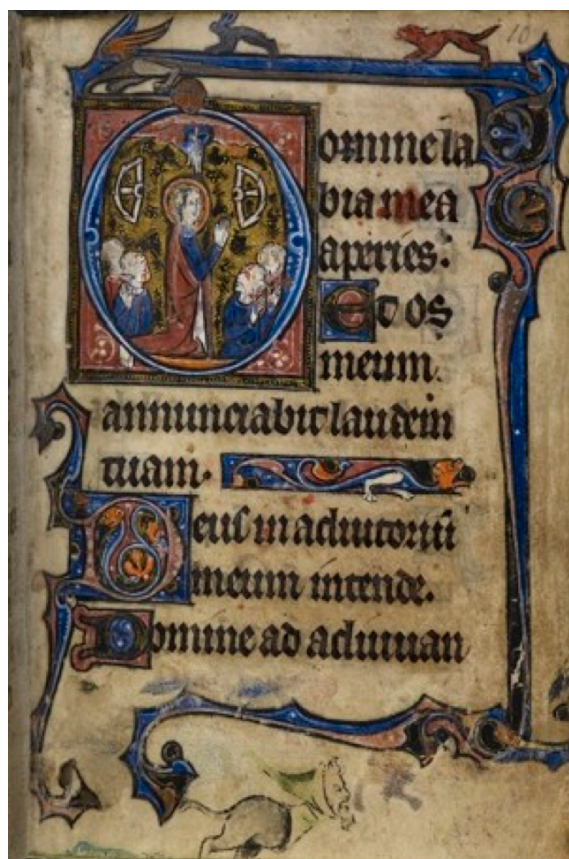 10
Domine la
bia mea
aperies.
Et os
meum.
annunciabit laudem
tuam.
Deus in adiutoriũ
meum intende.
Domine ad adiuuan